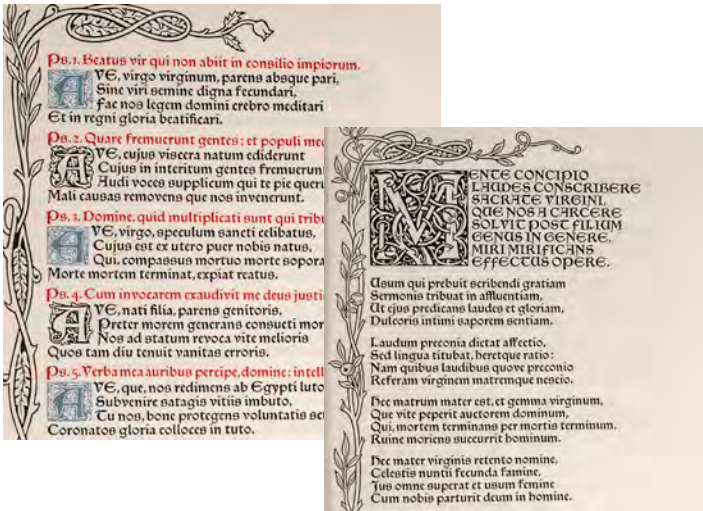 Ps. 1. Beatus vir qui non abiit in consilio impiorum.
AVE, virgo virginum, parens absque pari,
Sine viri semine digna fecundari,
Fac nos legem domini crebro meditari
Et in regni gloria beatificari.
Ps. 2. Quare fremuerunt gentes: et populi me
AVE, cujus viscera natum ediderunt
Cujus in interitum gentes fremuerun
Audi voces supplicum qui te pie quer
Mali causas removens que nos invenerunt.
Ps. 3. Domine, quid multiplicati sunt qui tribu
AVE, virgo, speculum sancti celibatus,
Cujus est ex utero puer nobis natus,
Qui, compassus mortuo morte sopora
Morte mortem terminat, expiat reatus.
Ps. 4. Cum invocarem exaudivit me deus justi
AVE, nati filia, parens genitoris,
Preter morem generans consueti mor
Nos ad statum revoca vite melioris
Quos tam diu tenuit vanitas erroris.
Ps. 5. Verba mea auribus percipe, domine: intell
AVE, que, nos redimens ab Egypti luto
Subvenire satagis vitiis imbuto,
Tu nos, bone protegens voluntatis sc
Coronatos gloria colloces in tuto.
MENTE CONCIPIO
LAUDES CONSCRIBERE
SACRATE VIRGINI,
QUE NOS A CARCERE
SOLVIT POST FILIUM
GENUS IN GENERE,
MIRI MIRIFICANS
EFFECTUS OPERE.
Usum qui prebuit scribendi gratiam
Sermonis tribuat in affluentiam,
Ut ejus predicans laudes et gloriam,
Dulcoris intimi saporem sentiam.
Laudum preconia dictat affectio,
Sed lingua titubat, heretque ratio:
Nam quibus laudibus quove preconio
Referam virginem matremque nescio.
Hec matrum mater est, et gemma virginum,
Que vite peperit auctorem dominum,
Qui, mortem terminans per mortis terminum,
Ruine moriens succurrit hominum.
Hec mater virginis retento nomine,
Celestis nuntii fecunda famine,
Jus omne superat et usum femine
Cum nobis parturit deum in homine.